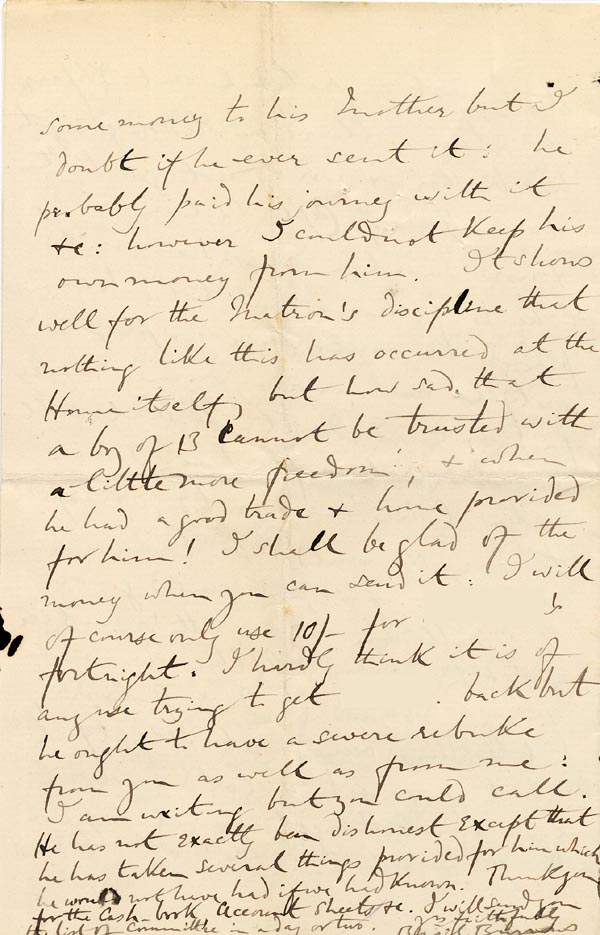 some money to his Mother but I
doubt if he ever sent it: he
probably paid his journey with it
&c: however I could not keep his
own money from him. It shows
well for the Matron's discipline that
nothing like this has occurred at the
Home itself, but how sad that
a boy of 13 cannot be trusted with
a little more freedom!, & when
he had a good trade & home provided
for him! I shall be glad of the
money when you can send it: I will
of course only use 10/- for 's
fortnight. I hardly think it is of
any use trying to get back but
he ought to have a severe rebuke
from you as well as from me:
I am writing but you could call.
He has not exactly been dishonest except that
he has taken several things provided for him which
he would not have had if we had known. Thank you
for the Cash-book Account Sheets &c. I will send you
the list of Committee in a day or two. Yrs faithfully